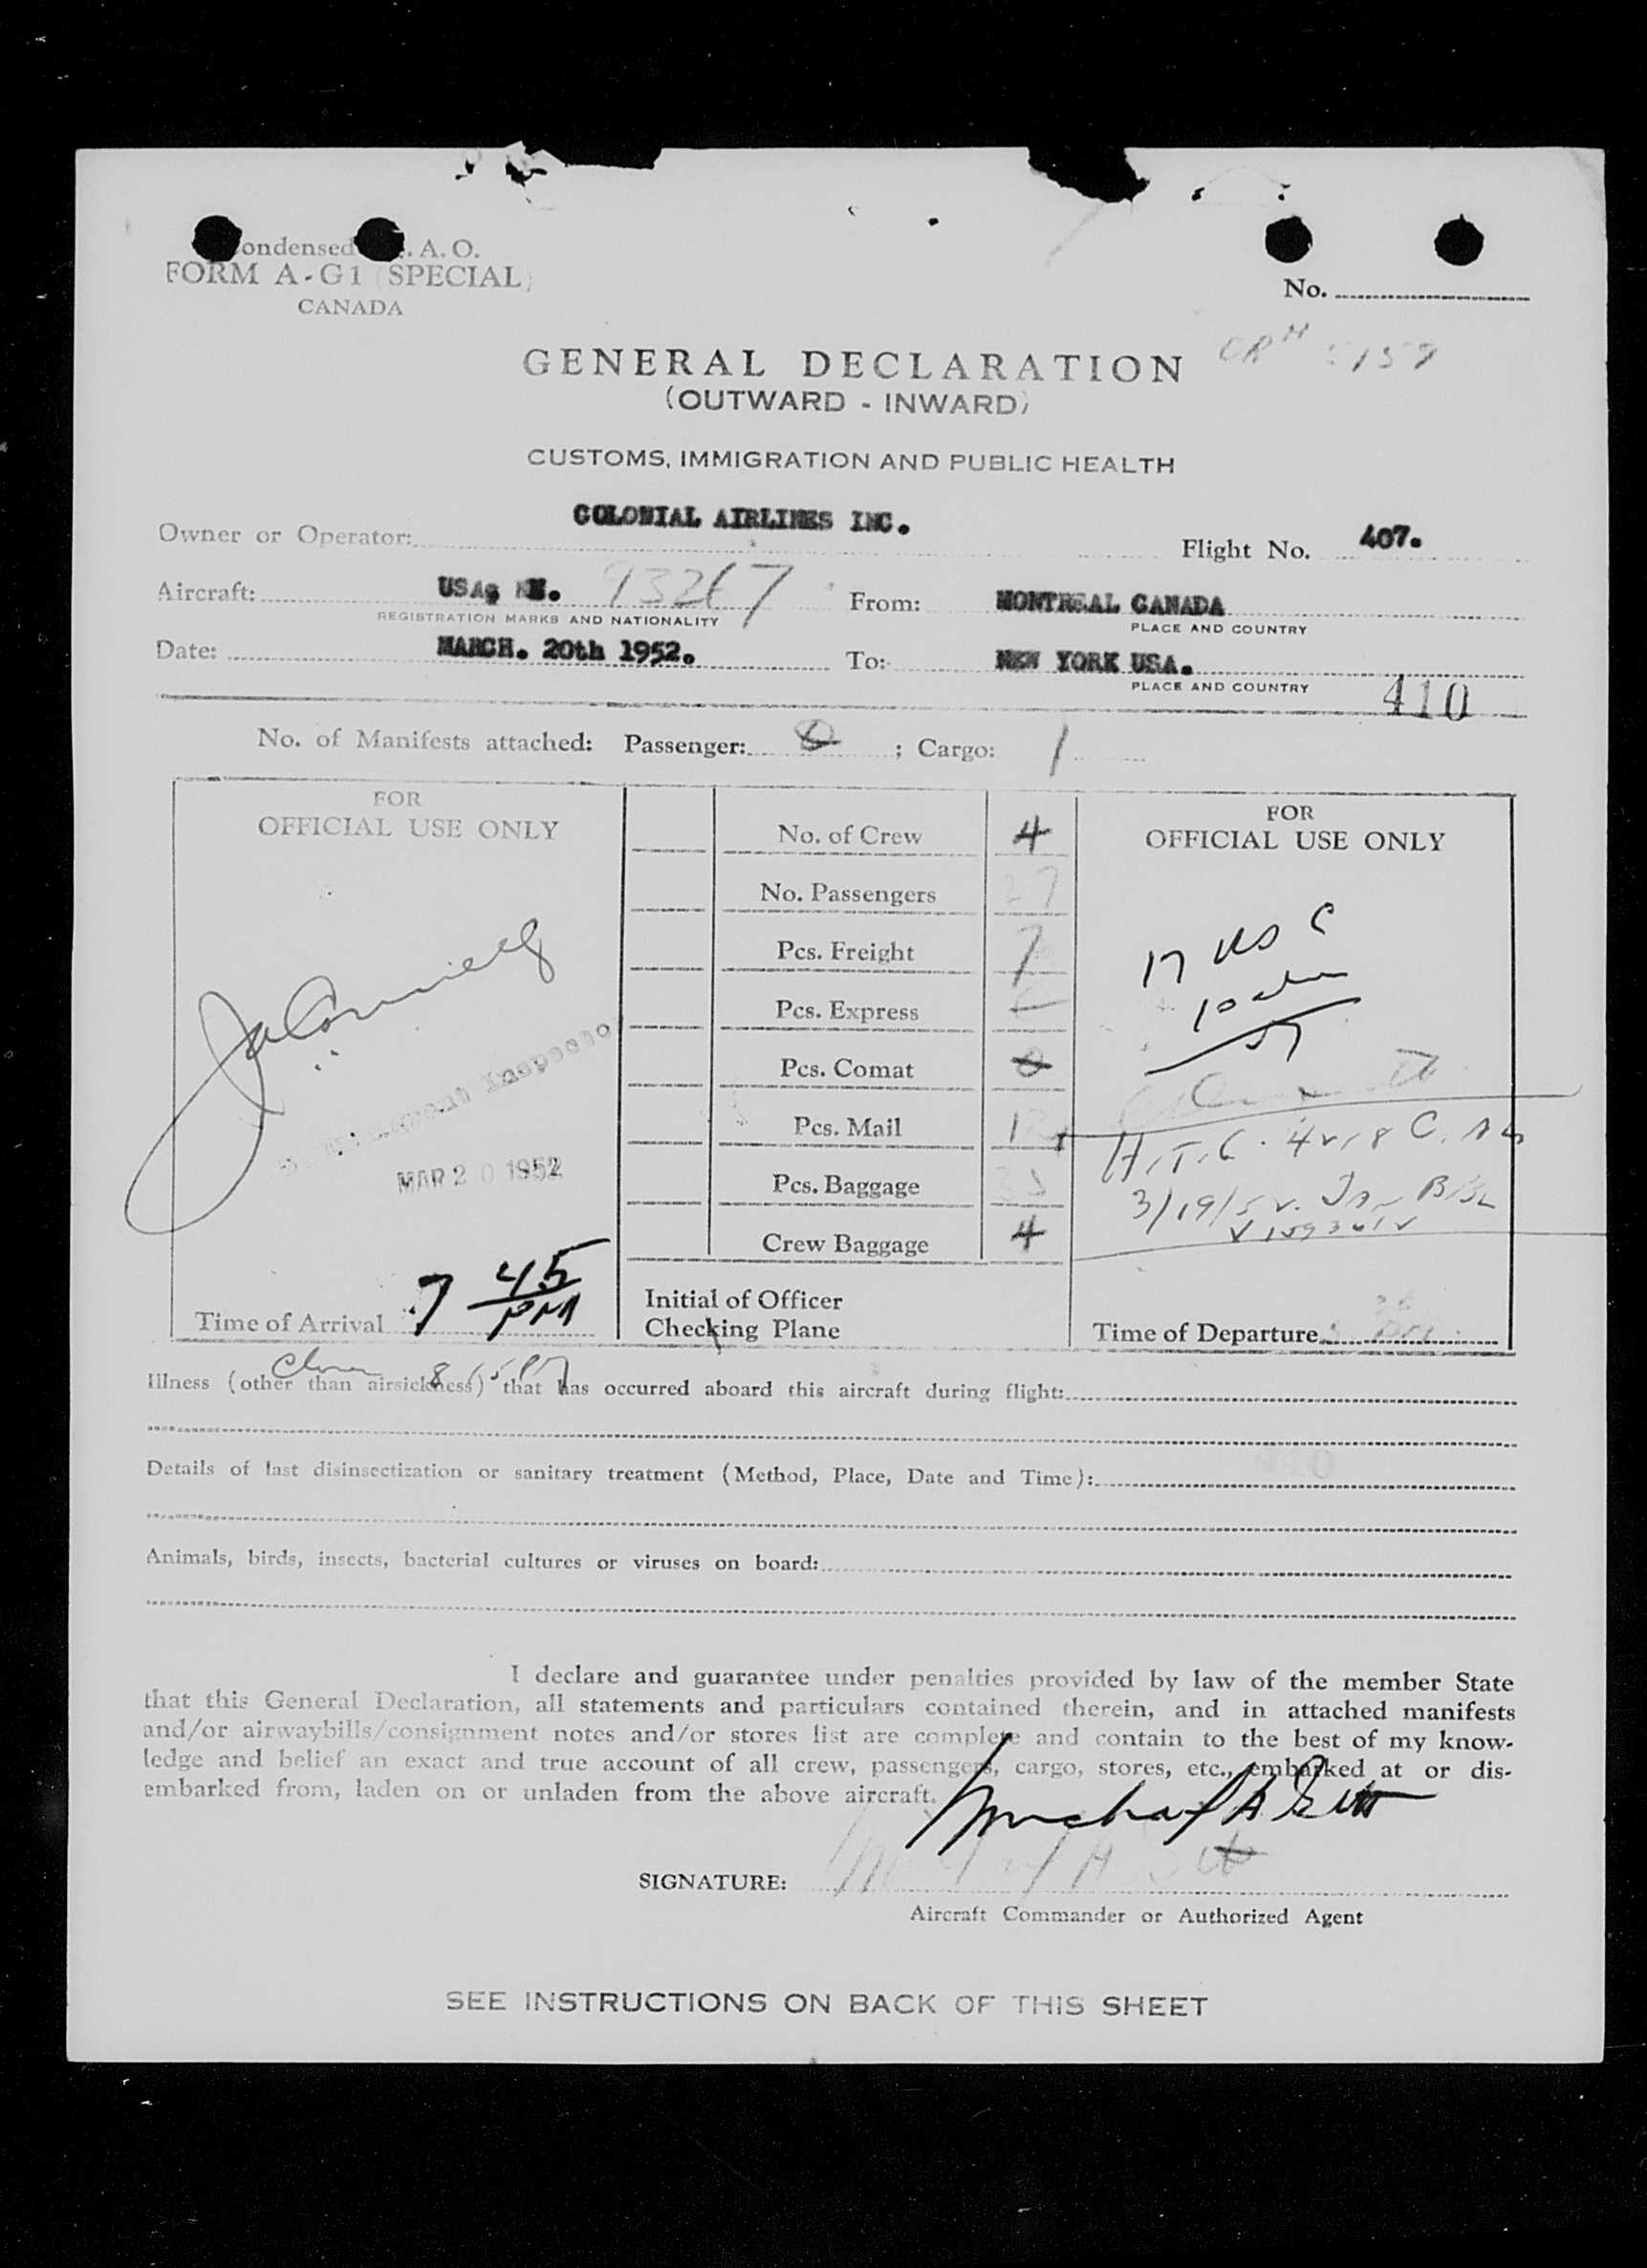 ondensed . A. O.
FORM A-G1 (SPECIAL)
CANADA
No.
GENERAL DECLARATION
(OUTWARD - INWARD)
CUSTOMS, IMMIGRATION AND PUBLIC HEALTH
Owner or Operator: COLONIAL AIRLINES INC. Flight No. 407.
Aircraft: USA. 93267 From: MONTREAL CANADA
REGISTRATION MARKS AND NATIONALITY PLACE AND COUNTRY
Date: MARCH. 20th 1952. To: NEW YORK USA.
PLACE AND COUNTRY 410
No. of Manifests attached: Passenger: 0 ; Cargo: 1
FOR
OFFICIAL USE ONLY
No. of Crew 4
No. Passengers 27
Pcs. Freight 7
Pcs. Express
Pcs. Comat 0
Pcs. Mail
Pcs. Baggage
Crew Baggage 4
Initial of Officer
Checking Plane
FOR
OFFICIAL USE ONLY
17 USC
10
27
3/19/52
Inspector
MAR 20 1952
Time of Arrival 7 45 PM
Time of Departure
Illness (other than airsickness) that has occurred aboard this aircraft during flight:
Details of last disinsectization or sanitary treatment (Method, Place, Date and Time):
Animals, birds, insects, bacterial cultures or viruses on board:
I declare and guarantee under penalties provided by law of the member State
that this General Declaration, all statements and particulars contained therein, and in attached manifests
and/or airwaybills/consignment notes and/or stores list are complete and contain to the best of my know-
ledge and belief an exact and true account of all crew, passengers, cargo, stores, etc., embarked at or dis-
embarked from, laden on or unladen from the above aircraft.
SIGNATURE:
Aircraft Commander or Authorized Agent
SEE INSTRUCTIONS ON BACK OF THIS SHEET